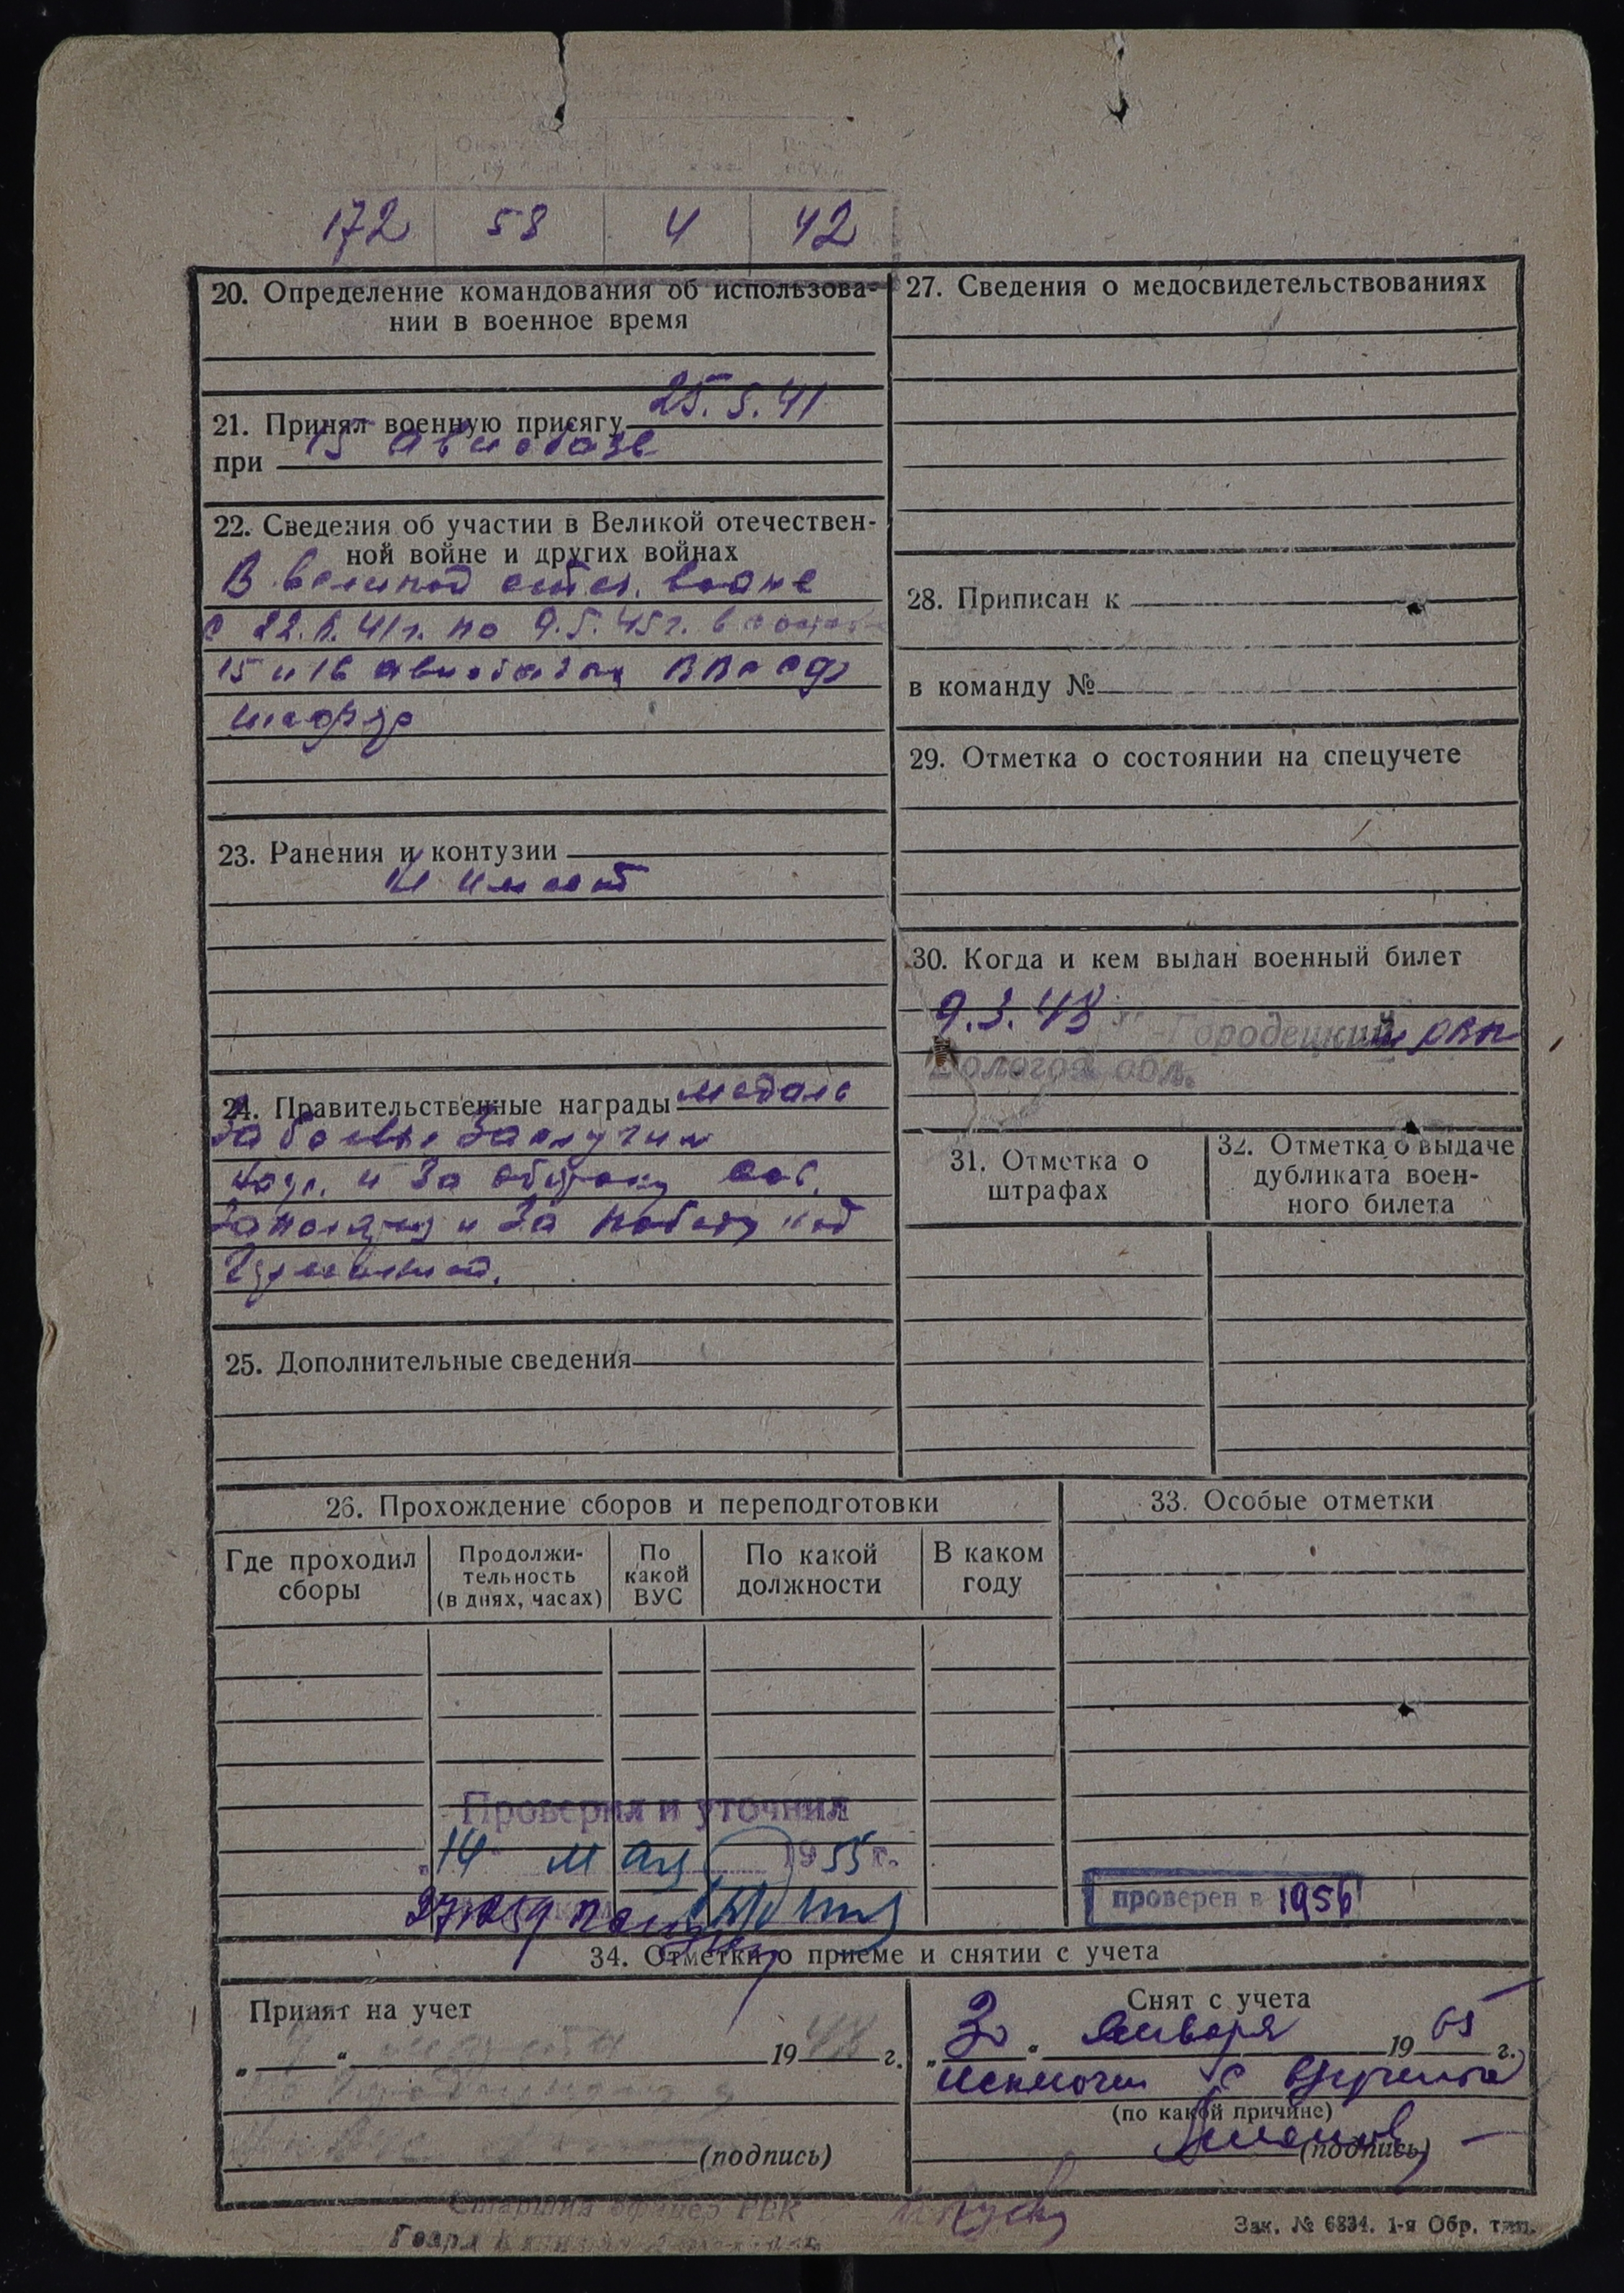 172 58 4 42
20. Определение командования об использова-
нии в военное время
21. Принял военную присягу 25.5.41
при 15 авиобазе
22. Сведения об участии в Великой отечествен-
ной войне и других войнах
В великой отеч. войне
с 22.6.41г. по 9.5.45г. в составе
15 и 16 авиобазы ВВС СФ
шофер
23. Ранения и контузии
Н имеет
24. Правительственные награды медаль
За боевые Заслуги
и За оборону сов.
Заполярья и За победу над
Германией.
25. Дополнительные сведения
26. Прохождение сборов и переподготовки
Где проходил
сборы
Продолжи-
тельность
(в днях, часах)
По
какой
ВУС
По какой
должности
В каком
году
Проверил и уточнил
"14" мая 1955 г.
27. Сведения о медосвидетельствованиях
28. Приписан к
в команду №
29. Отметка о состоянии на спецучете
30. Когда и кем выдан военный билет
9.3.48 -Городецкий РВК
Вологод. обл.
31. Отметка о
штрафах
32. Отметка о выдаче
дубликата воен-
ного билета
33. Особые отметки
проверен в 1956
34. Отметки о приеме и снятии с учета
Принят на учет
" " 1948 г.
(подпись)
Снят с учета
"30" января 1965 г.
исключен с
(по какой причине)
(подпись)
Старшина офицер РВК
Зак. № 6834. 1-я Обр. тип.